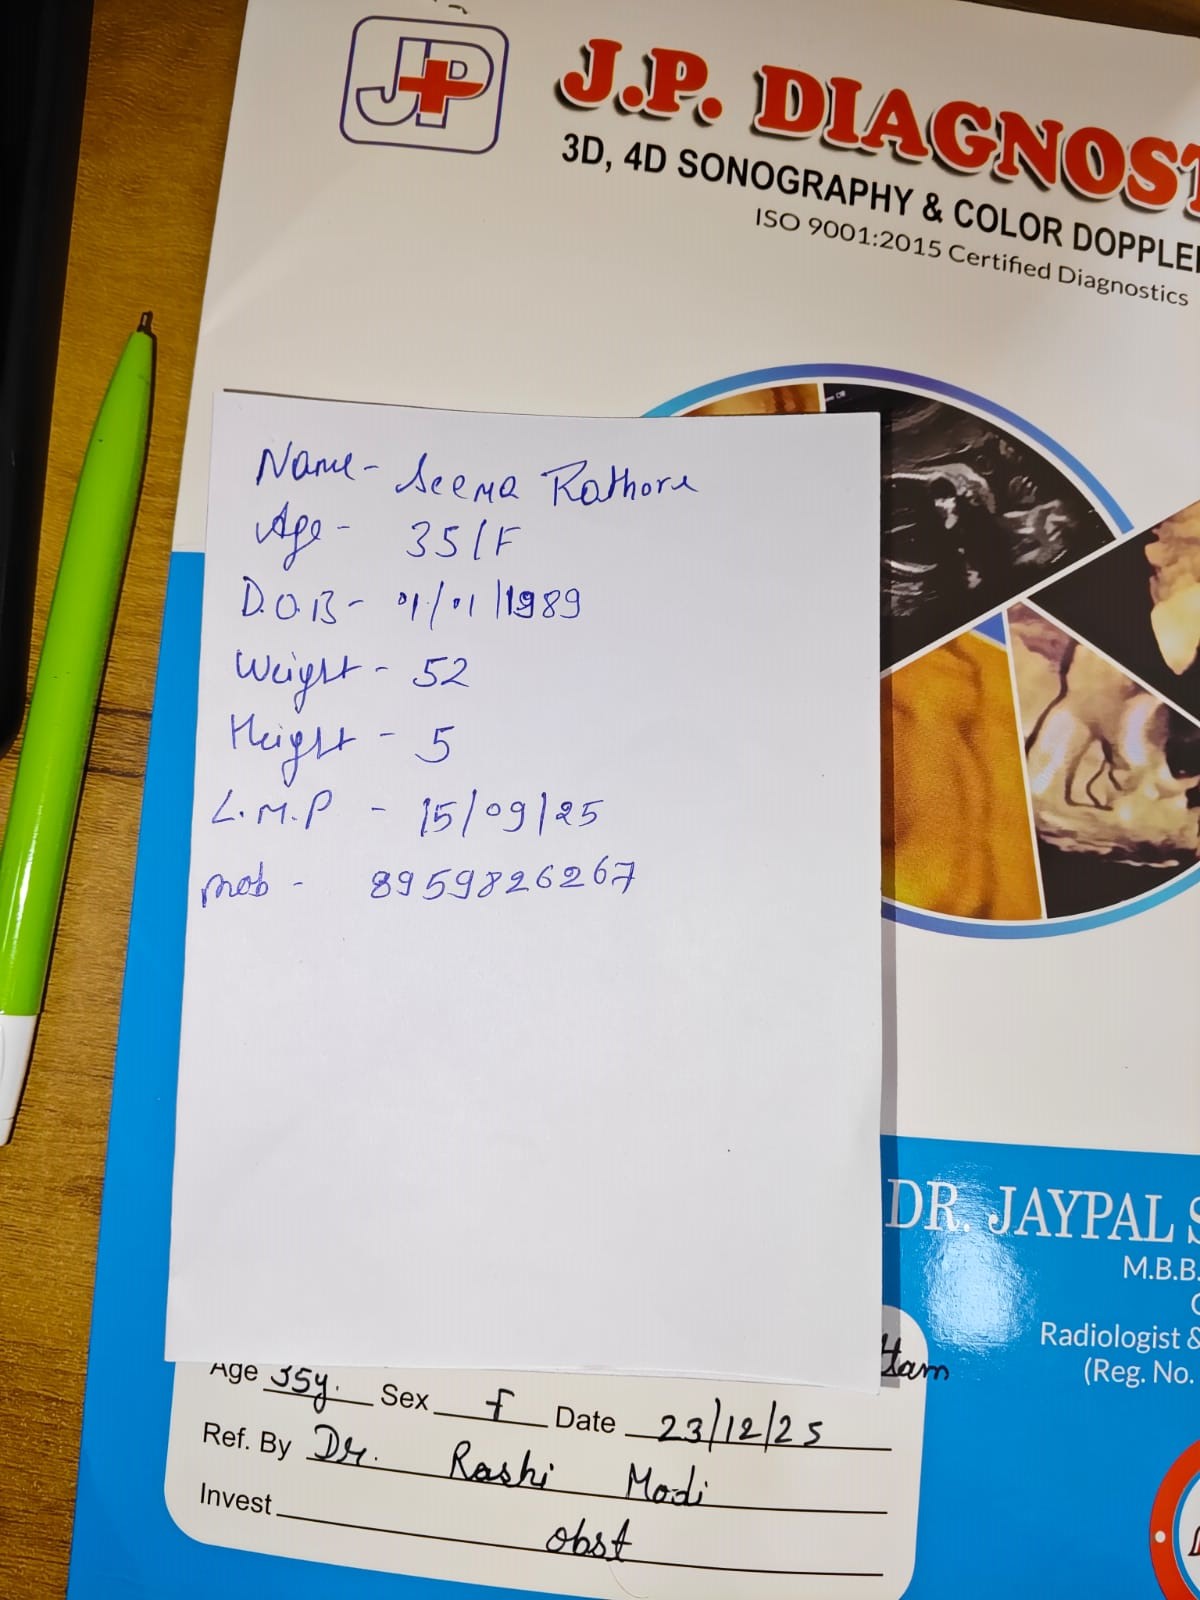 JPD
J.P. DIAGNOST
3D, 4D SONOGRAPHY & COLOR DOPPLER
ISO 9001:2015 Certified Diagnostics
Name - Seema Rathore
Age - 35/F
D.O.B - 01/01/1989
Weight - 52
Height - 5
L.M.P - 15/09/25
mob - 8959826267
DR. JAYPAL S
M.B.B.
Radiologist &
(Reg. No.
Age 35y. Sex F Date 23/12/25
Ref. By Dr. Rashi Modi
Invest obst